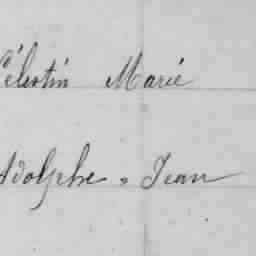 Célestin Marie
Adolphe, Jean